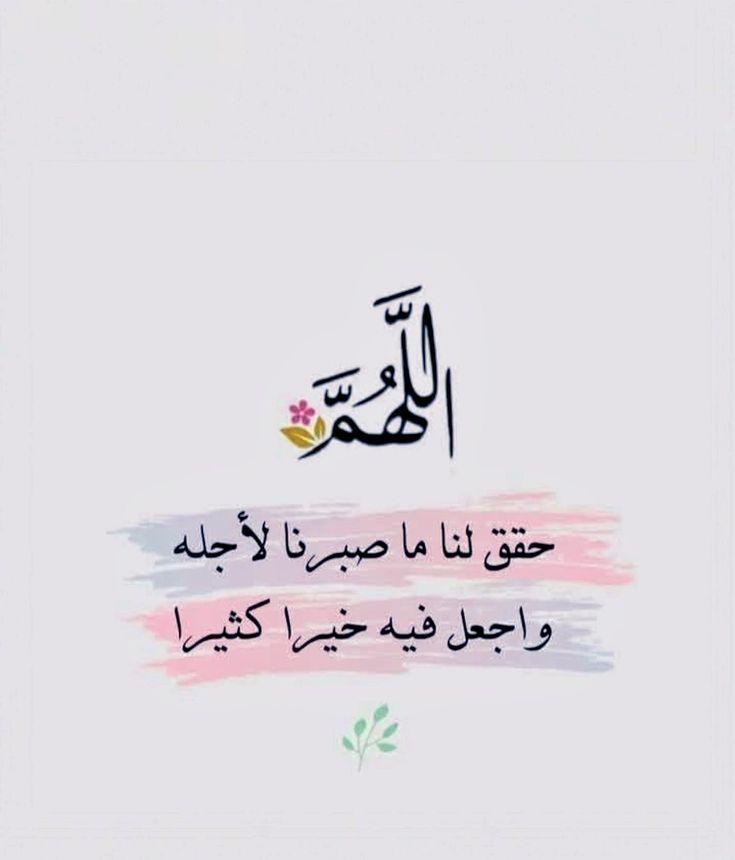 اللَّهُمَّ
حقق لنا ما صبرنا لأجله
واجعل فيه خيرا كثيرا